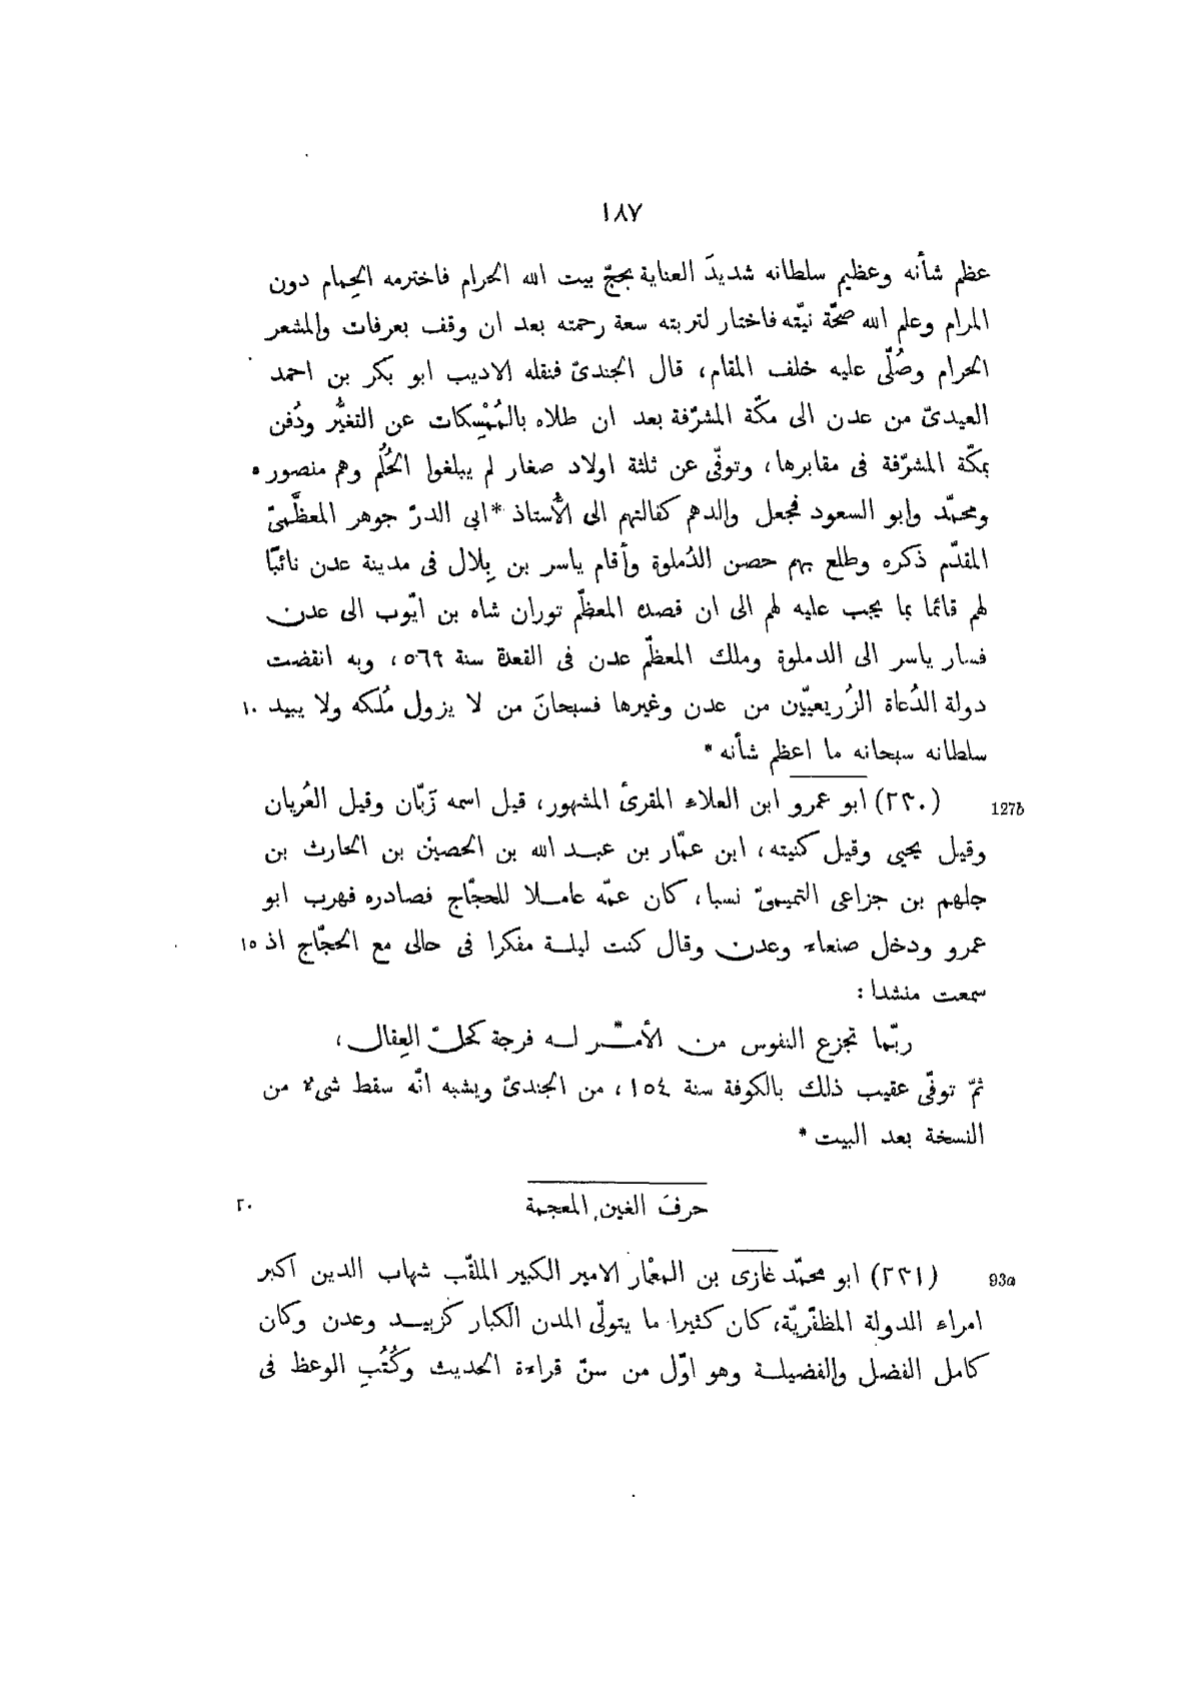 ١٨٧
عظم شأنه وعظيم سلطانه شديدَ العناية بحجّ بيت الله الحرام فاخترمه الحِمام دون
المرام وعلم الله صحّة نيّته فاختار لتربته سعة رحمته بعد ان وقف بعرفات والمشعر
الحرام وصُلّى عليه خلف المقام، قال الجندىّ فنقله الاديب ابو بكر بن احمد
العيدىّ من عدن الى مكّة المشرّفة بعد ان طلاه بالمُمْسِكات عن التغيُّر ودُفن
بمكّة المشرّفة فى مقابرها، وتوفّى عن ثلثة اولاد صغار لم يبلغوا الحُلُم وهم منصور ٥
ومحمّد وابو السعود فجعل والدهم كفالتهم الى الأُستاذ *ابى الدرّ جوهر المعظَّمىّ
المقدّم ذكره وطلع بهم حصن الدُملوة وأقام ياسر بن بِلال فى مدينة عدن نائبًا
لهم قائما بما يجب عليه لهم الى ان قصده المعظّم توران شاه بن ايّوب الى عدن
فسار ياسر الى الدملوة وملك المعظّم عدن فى القعدة سنة ٥٦٩، وبه انقضت
دولة الدُعاة الزُريعيّين من عدن وغيرها فسبحانَ من لا يزول مُلكه ولا يبيد ١٠
سلطانه سبحانه ما اعظم شأنه *
127b (٢٣٠) ابو عمرو ابن العلاء المقرئ المشهور، قيل اسمه زَبّان وقيل العُريان
وقيل يحيى وقيل كنيته، ابن عمّار بن عبد الله بن الحصين بن الحارث بن
جلهم بن جزاعى التميمىّ نسبا، كان عمّه عاملا للحجّاج فصادره فهرب ابو
عمرو ودخل صنعاء وعدن وقال كنت ليلة مفكرا فى حالى مع الحجّاج اذ ١٥
سمعت منشدا :
ربّما تجزع النفوس من الأمْـر له فرجة كحلّ العِقال،
ثمّ توفّى عقيب ذلك بالكوفة سنة ١٥٤، من الجندىّ ويشبه انّه سقط شىء من
النسخة بعد البيت *
حرف الغين المعجمة ٢٠
93a (٢٣١) ابو محمّد غازى بن المعْمار الامير الكبير الملقّب شهاب الدين اكبر
امراء الدولة المظفّريّة، كان كثيرا ما يتولّى المدن الكبار كزبيد وعدن وكان
كامل الفضل والفضيلة وهو اوّل من سنّ قراءة الحديث وكُتُبِ الوعظ فى